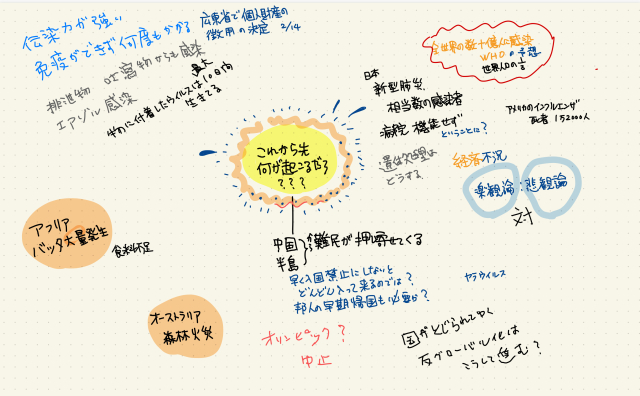 伝染力が強い
免疫ができず何度もかかる
広東省で個人財産の
徴用の決定 2/14
排泄物
吐瀉物からも感染
エアゾル感染
物に付着したウイルスは10日間
最大
生きてる
全世界の数十億人に感染
WHOの予想
世界人口の1/3
日本
新型肺炎
相当数の感染者
病院機能せず
ということに?
アメリカのインフルエンザ
死者 152000人
遺体処理は
どうする
経済不況
楽観論:悲観論
対
これから先
何が起こるだろ
???
アフリア
バッタ大量発生
食料不足
中国
半島
から難民が押し寄せてくる
早く入国禁止にしないと
どんどん入って来るのでは?
邦人の早期帰国も必要か?
オーストラリア
森林火災
オリンピック?
中止
国がとじられてゆく
反グローバル化は
こうして進む?